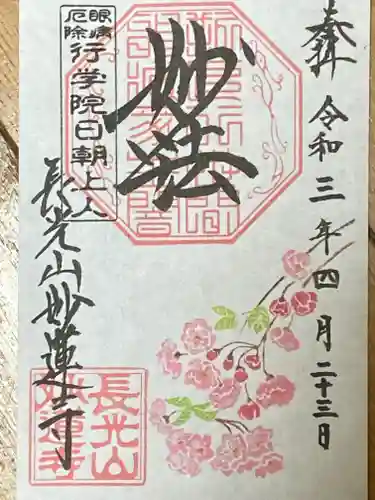 奉拝
令和三年四月二十三日
妙法
眼病
厄除
行学院日朝上人
長光山妙蓮寺
長光山
妙蓮寺